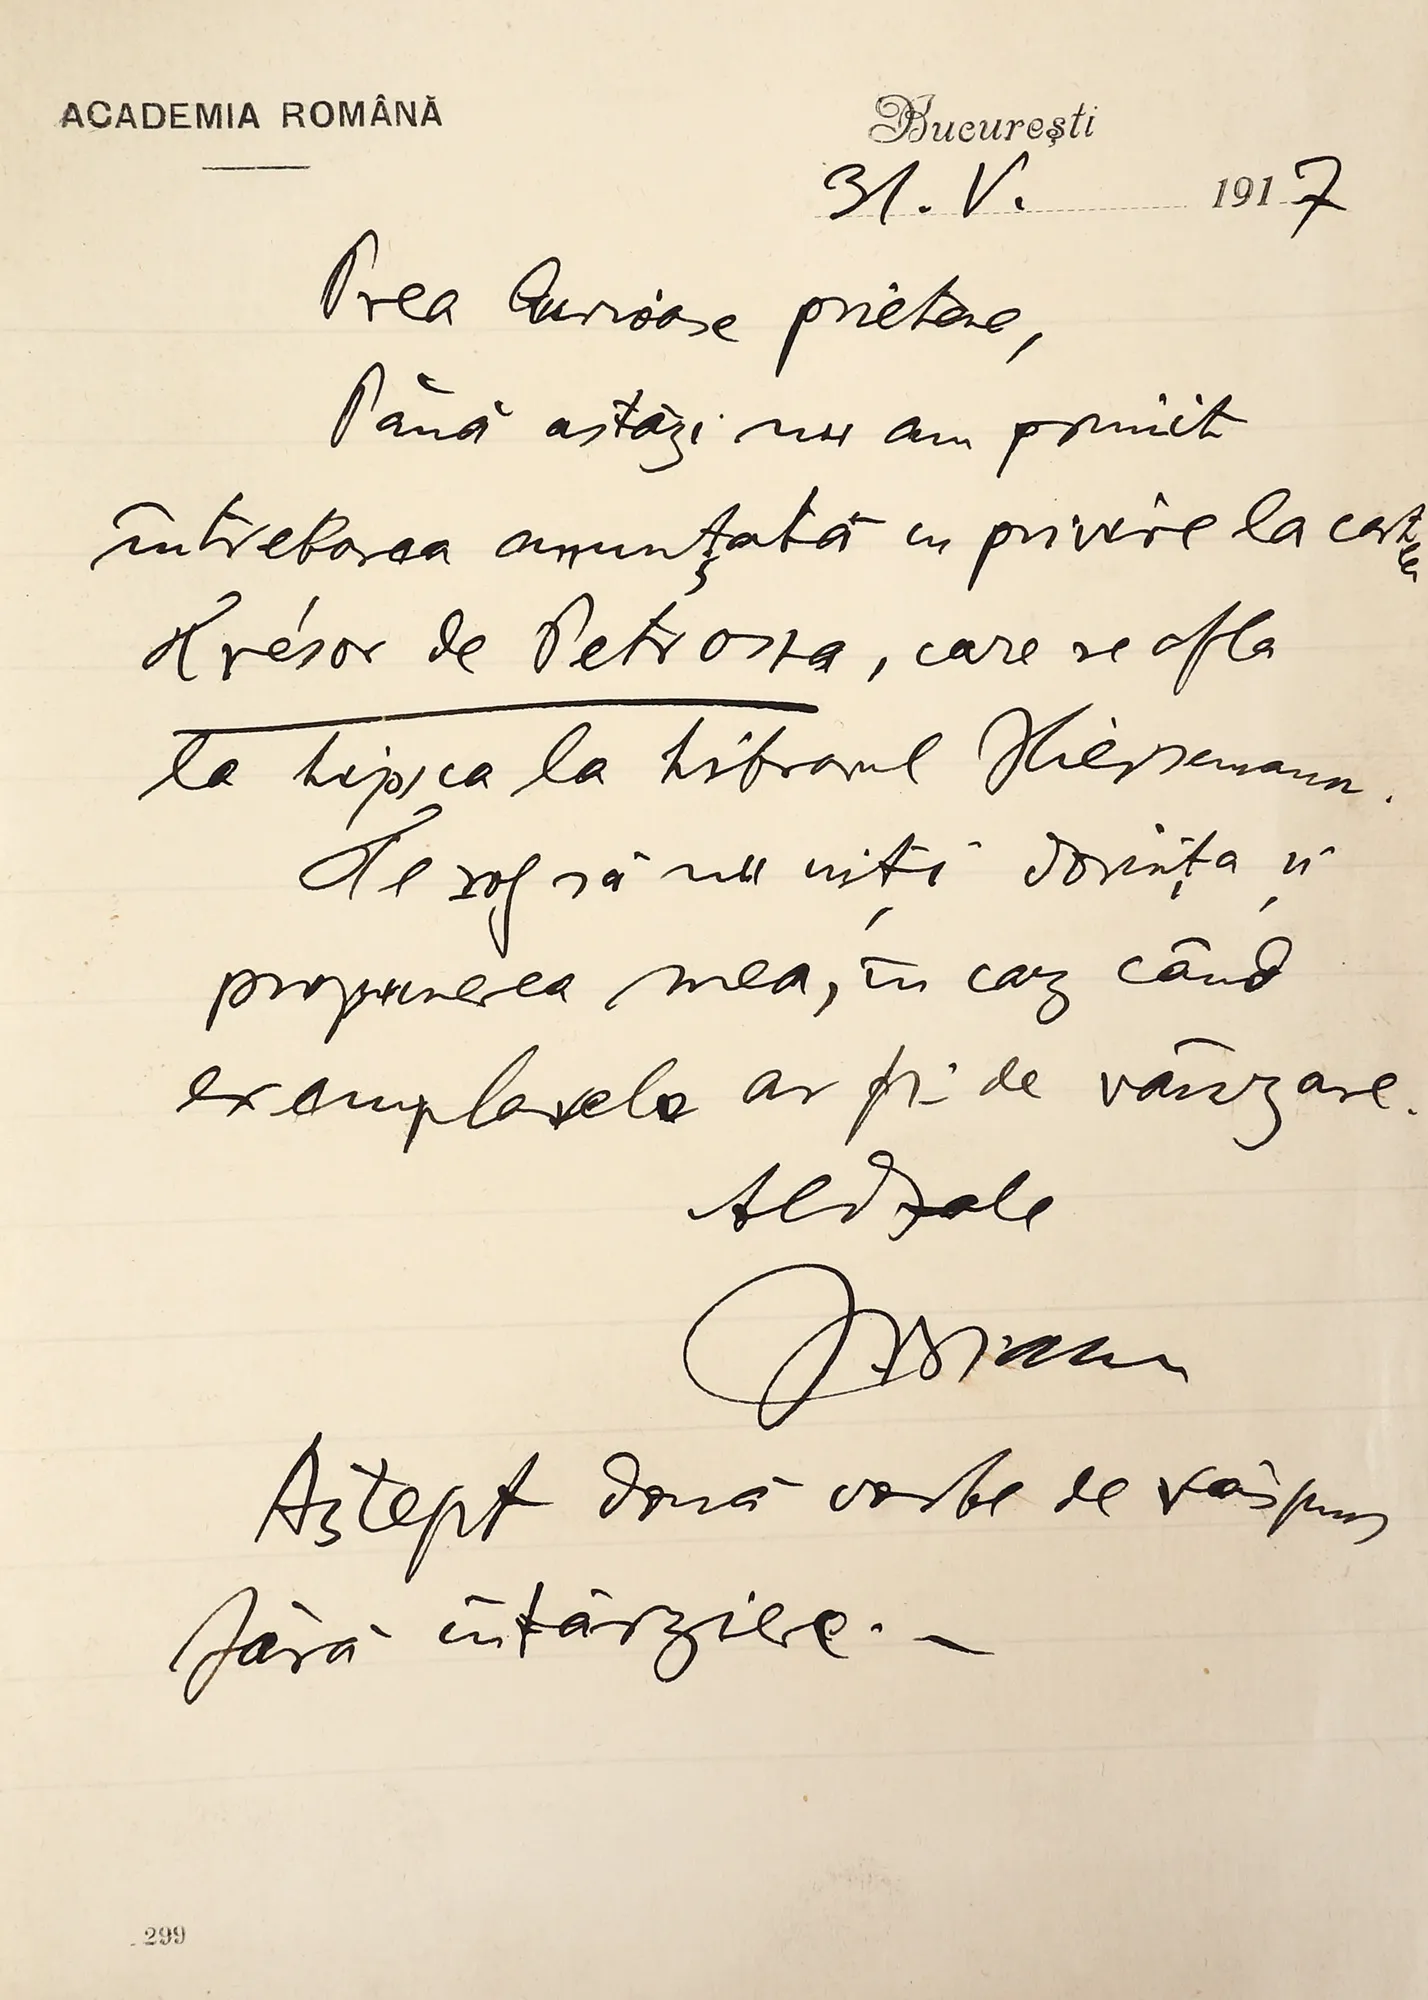 ACADEMIA ROMÂNĂ
București
31. V. 1917
Prea Curioase prietene,
Până astăzi nu am primit
întrebarea anunțată cu privire la cartea
Trésor de Petrossa, care se afla
la Lipsca la librarul Hiersemann.
Te rog să nu uiți dorința și
propunerea mea, în caz când
exemplarele ar fi de vânzare.
Al dtale
IBianu
Aștept două vorbe de răspuns
fără întârziere. —
299